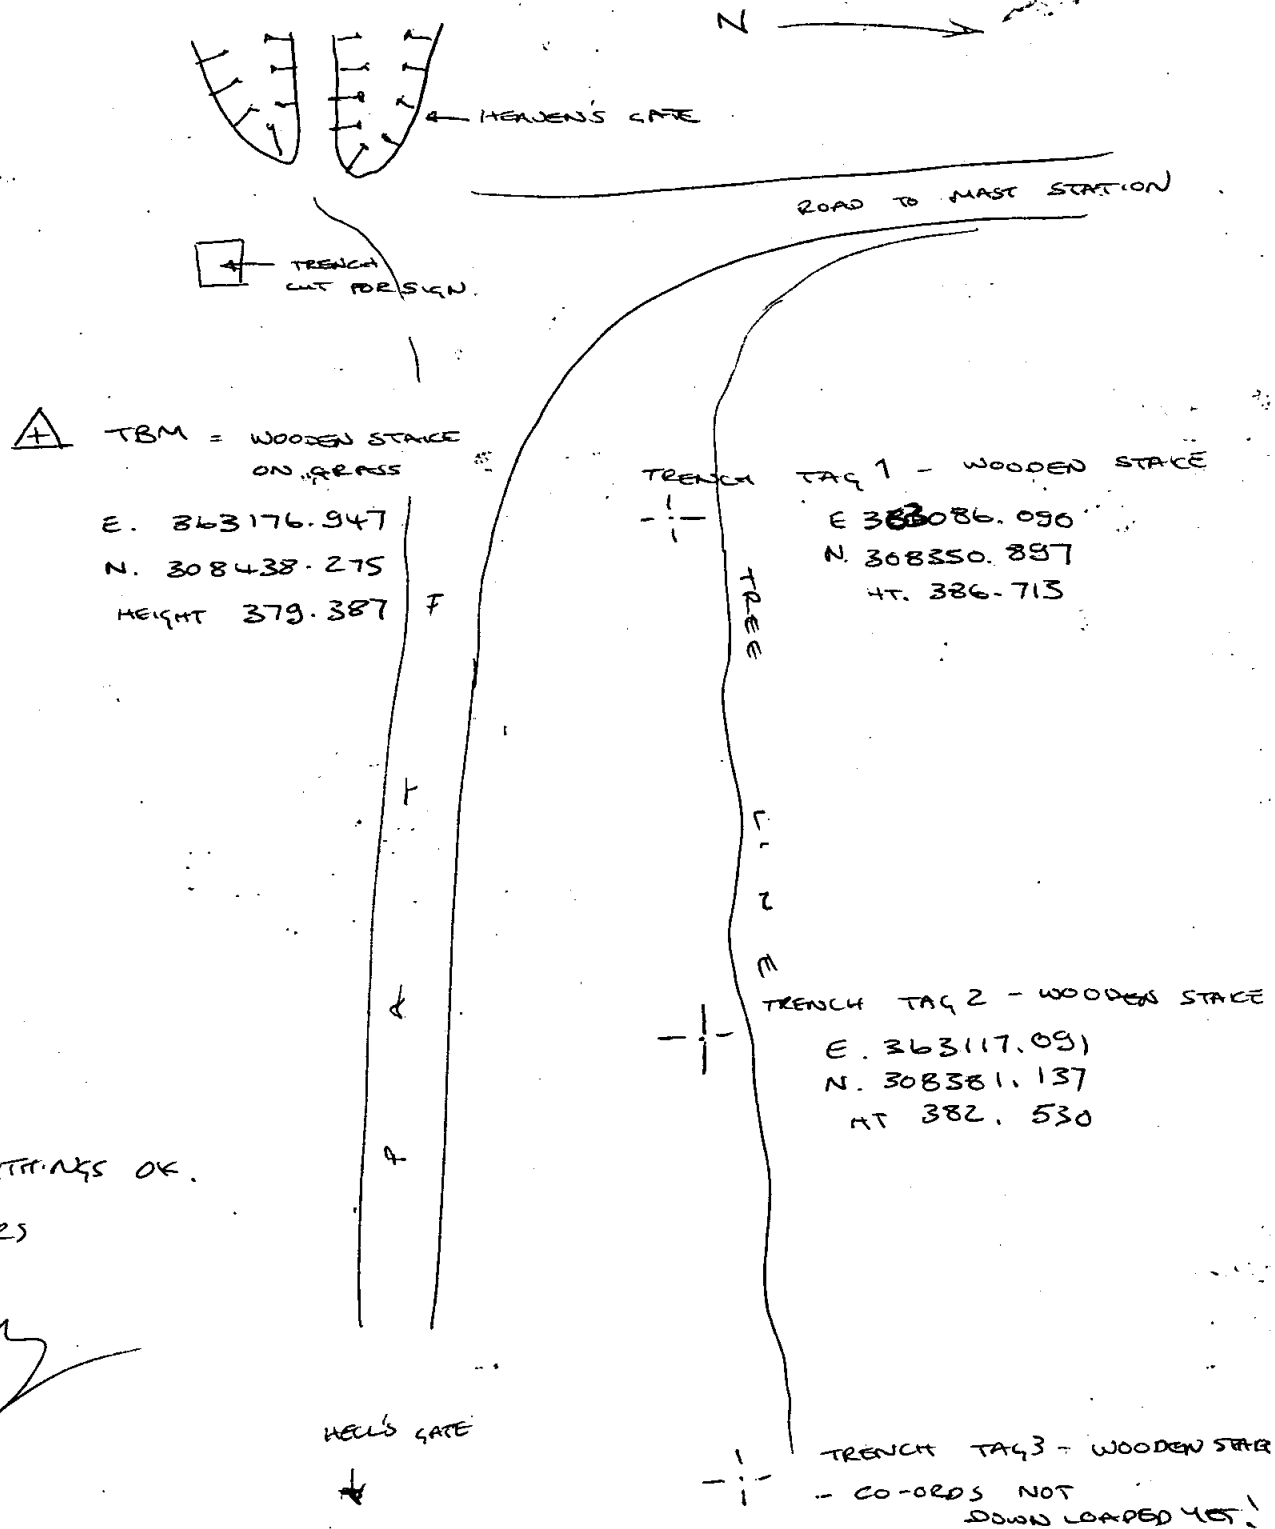 N
HEAVEN'S GATE
ROAD TO MAST STATION
TRENCH
CUT FOR SIGN.
TBM = WOODEN STAKE
ON GRASS
E. 363176.947
N. 308438.275
HEIGHT 379.387
TRENCH TAG 1 - WOODEN STAKE
E 363086.090
N. 308350.897
HT. 386.713
TREE LINE
TRACK
TRENCH TAG 2 - WOODEN STAKE
E. 363117.091
N. 308381.137
HT 382.530
THINGS OK.
RS
HELL'S GATE
TRENCH TAG 3 - WOODEN STAKE
- CO-ORDS NOT
DOWN LOADED YET!